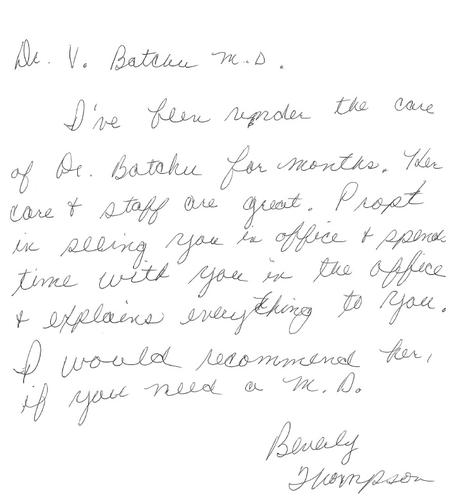 Dr. V. Batchu M.D.
I've been under the care
of Dr. Batchu for months. Her
care & staff are great. Propt
in seeing you in office & spends
time with you in the office
& explains everything to you.
I would recommend her,
if you need a M.D.
Beverly
Thompson